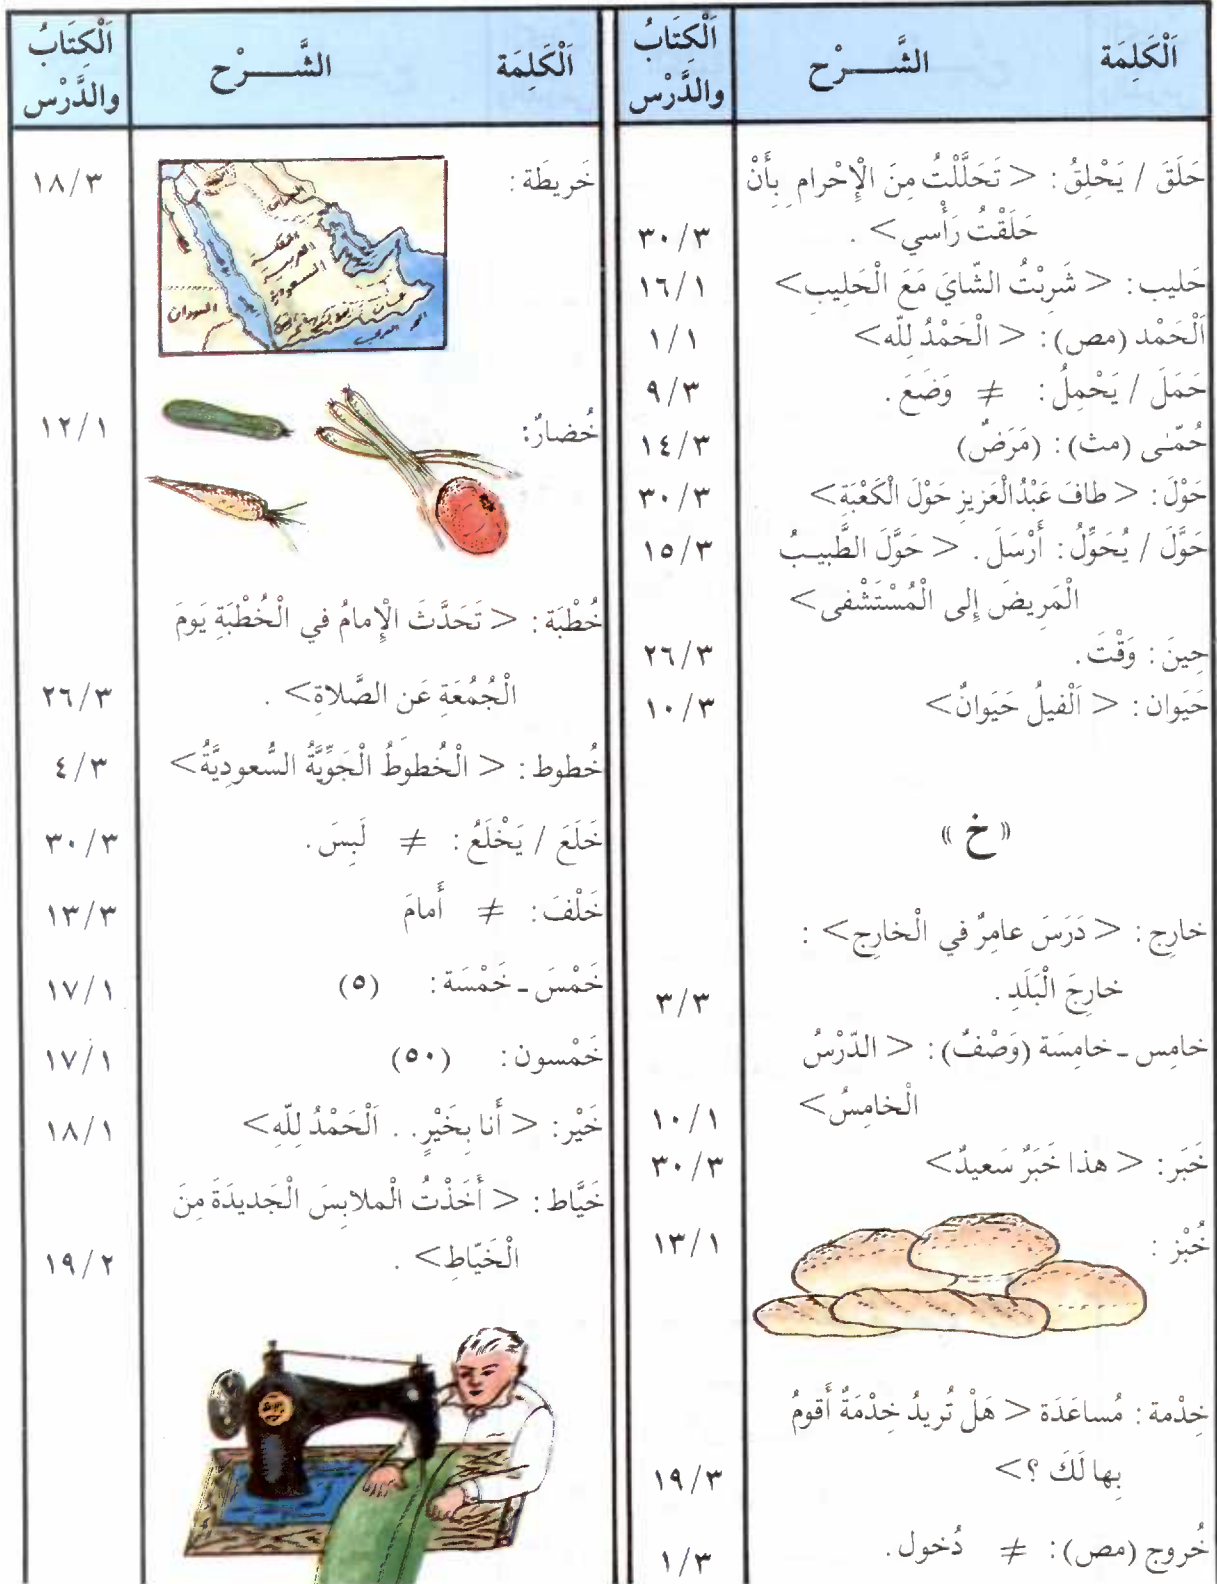 اَلْكَلِمَة الشَّـــرْح اَلْكِتَابُ والدَّرْس
حَلَقَ / يَحْلِقُ: < تَحَلَّلْتُ مِنَ الْإِحْرام بِأَنْ
حَلَقْتُ رَأْسي> . ٣٠/٣
حَليب: < شَرِبْتُ الشّايَ مَعَ الْحَلِيبِ> ١٦/١
اَلْحَمْد (مص): < الْحَمْدُ لِلّه> ١/١
حَمَلَ / يَحْمِلُ: ≠ وَضَعَ. ٩/٣
حُمّى (مث): (مَرَضٌ) ١٤/٣
حَوْلَ: < طافَ عَبْدُالْعَزيزِ حَوْلَ الْكَعْبَةِ> ٣٠/٣
حَوَّلَ / يُحَوِّلُ: أَرْسَلَ. < حَوَّلَ الطَّبيـبُ ١٥/٣
الْمَرِيضَ إِلى الْمُسْتَشْفى>
حِينَ: وَقْتَ. ٢٦/٣
حَيَوان: < اَلْفيلُ حَيَوانٌ> ١٠/٣
« خ »
خارِج: < دَرَسَ عامِرٌ في الْخارِجِ> :
خارِجَ الْبَلَدِ. ٣/٣
خامِس ـ خامِسَة (وَصْفٌ): < الدّرْسُ
الْخامِسُ> ١٠/١
خَبَر: < هذا خَبَرٌ سَعيدٌ> ٣٠/٣
خُبْز: ١٣/١
خِدْمة: مُساعَدَة < هَلْ تُريدُ خِدْمَةً أَقومُ
بِها لَكَ ؟> ١٩/٣
خُروج (مص): ≠ دُخول. ١/٣
اَلْكَلِمَة الشَّـــرْح اَلْكِتَابُ والدَّرْس
خَريطَة: ١٨/٣
السودان
خُضارٌ: ١٢/١
خُطْبَة: < تَحَدَّثَ الْإِمامُ في الْخُطْبَةِ يَومَ
الْجُمُعَةِ عَنِ الصَّلاةِ> . ٢٦/٣
خُطوط: < الْخُطوطُ الْجَوِّيَّةُ السُّعودِيَّةُ> ٤/٣
خَلَعَ / يَخْلَعُ: ≠ لَبِسَ. ٣٠/٣
خَلْفَ: ≠ أَمامَ ١٣/٣
خَمْسَ ـ خَمْسَة: (٥) ١٧/١
خَمْسون: (٥٠) ١٧/١
خَيْر: < أَنا بِخَيْرٍ. . اَلْحَمْدُ لِلّهِ> ١٨/١
خَيَّاط: < أَخَذْتُ الْملابِسَ الْجَديدَةَ مِنَ
الْخَيّاطِ> . ١٩/٢